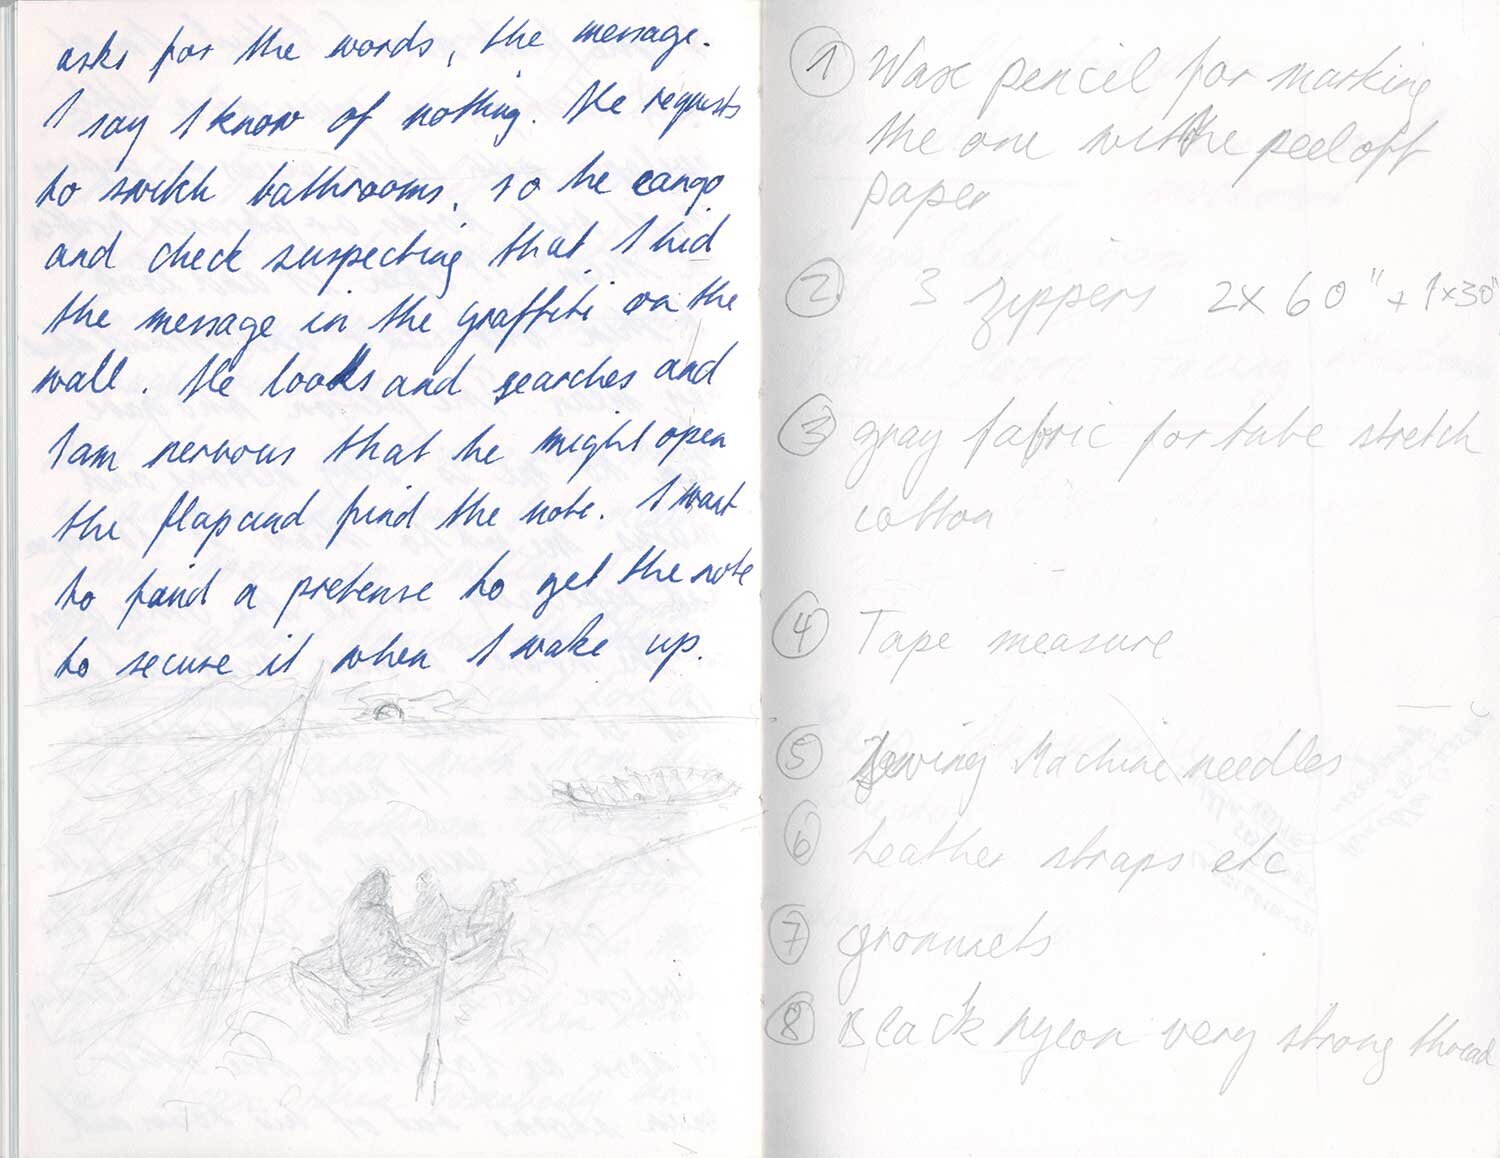 asks for the words, the message.
I say I know of nothing. He requests
to switch bathrooms, so he can go
and check suspecting that I hid
the message in the graffiti on the
wall. He looks and searches and
I am nervous that he might open
the flap and find the note. I want
to find a pretense to get the note
to secure it when I wake up.
1 Wax pencil for marking
the one with the peel off
paper
2. 3 zippers 2x60" + 1x30"
3 gray fabric for tube stretch
cotton
4 Tape measure
5 Sewing Machine needles
6 leather straps etc
7 grommets
8 Black nylon very strong thread